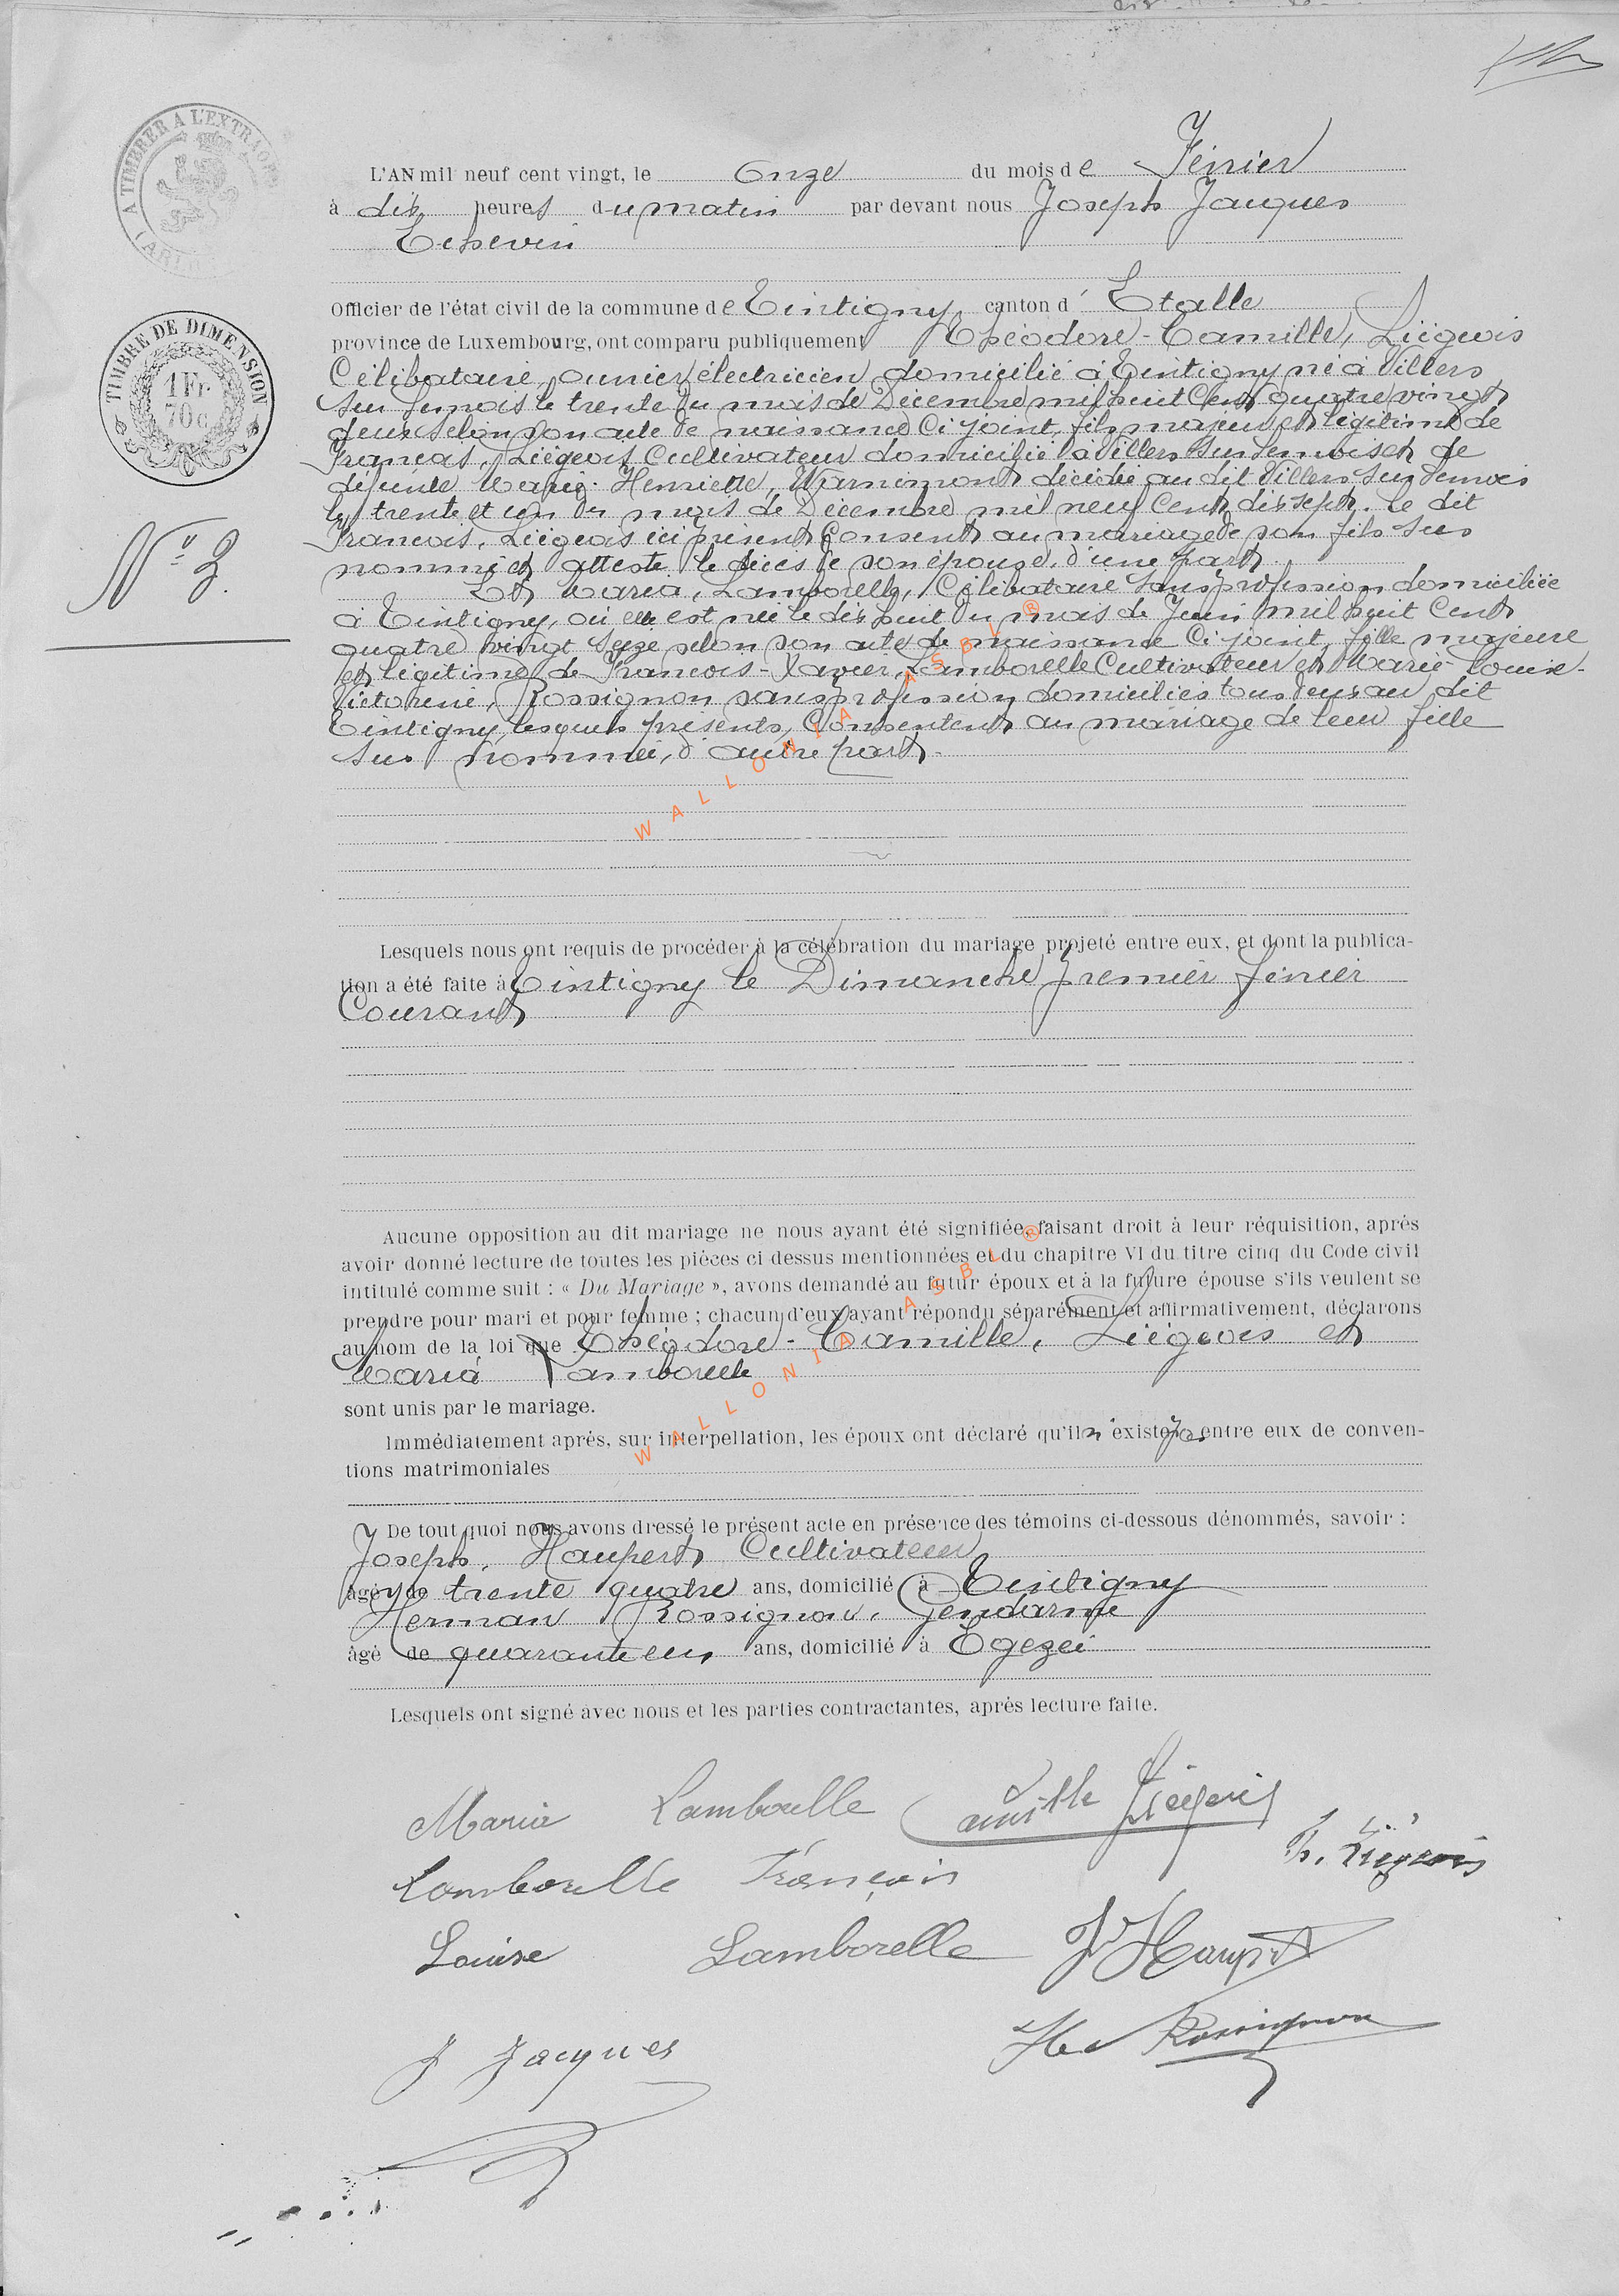 A TIMBRER A L'EXTRAOR
ARL
TIMBRE DE DIMENSION
1 Fr.
70 c
N° 3.
L'AN mil neuf cent vingt, le Onze du mois de Février
à dix heures du matin par devant nous Joseph Jacques
Echevin
Officier de l'état civil de la commune de Tintigny, canton d' Etalle
province de Luxembourg, ont comparu publiquement Théodore-Camille, Liégeois
Célibataire, ouvrier électricien domicilié à Tintigny né à Villers
sur Semois le trente du mois de Décembre mil huit Cent quatre vingt
deux selon son acte de naissance Ci joint, fils majeur et légitime de
François, Liégeois Cultivateur domicilié à Villers sur Semois et de
défunte Marie-Henriette, Warnimont décédée au dit Villers sur Semois
le trente et un du mois de Décembre mil neuf Cent dix sept. Le dit
François, Liégeois ici présent Consent au mariage de son fils sus
nommé et atteste le décès de son épouse, d'une part
Et Maria, Lamborelle, Célibataire sans profession domiciliée
à Tintigny, où elle est née le dix huit du mois de Juin mil huit Cent
quatre vingt seize selon son acte de naissance Ci joint, fille majeure
et légitime de François-Xavier, Lamborelle Cultivateur et Marie-Louise-
Victorine, Rossignon sans profession domiciliés tous deux au dit
Tintigny, lesquels présents, Consentent au mariage de leur fille
sus nommée, d'autre part.
WALLONIA ASBL ®
Lesquels nous ont requis de procéder à la célébration du mariage projeté entre eux, et dont la publica-
tion a été faite à Tintigny le Dimanche premier février
Courant
Aucune opposition au dit mariage ne nous ayant été signifiée, faisant droit à leur réquisition, après
avoir donné lecture de toutes les pièces ci dessus mentionnées et du chapitre VI du titre cinq du Code civil
intitulé comme suit : « Du Mariage », avons demandé au futur époux et à la future épouse s'ils veulent se
prendre pour mari et pour femme ; chacun d'eux ayant répondu séparément et affirmativement, déclarons
au nom de la loi que Théodore-Camille, Liégeois et
Maria Lamborelle
sont unis par le mariage.
WALLONIA ASBL ®
Immédiatement après, sur interpellation, les époux ont déclaré qu'il n'existe pas entre eux de conven-
tions matrimoniales
De tout quoi nous avons dressé le présent acte en présence des témoins ci-dessous dénommés, savoir :
Joseph, Haupert Cultivateur
âgé de trente quatre ans, domicilié à Tintigny
Herman Rossignon, Gendarme
âgé de quarante un ans, domicilié à Egezée
Lesquels ont signé avec nous et les parties contractantes, après lecture faite.
Maria Lamborelle Camille Liégeois
Lamborelle François
Liégeois
Louise Lamborelle J Haupert
J Jacques
Rossignon